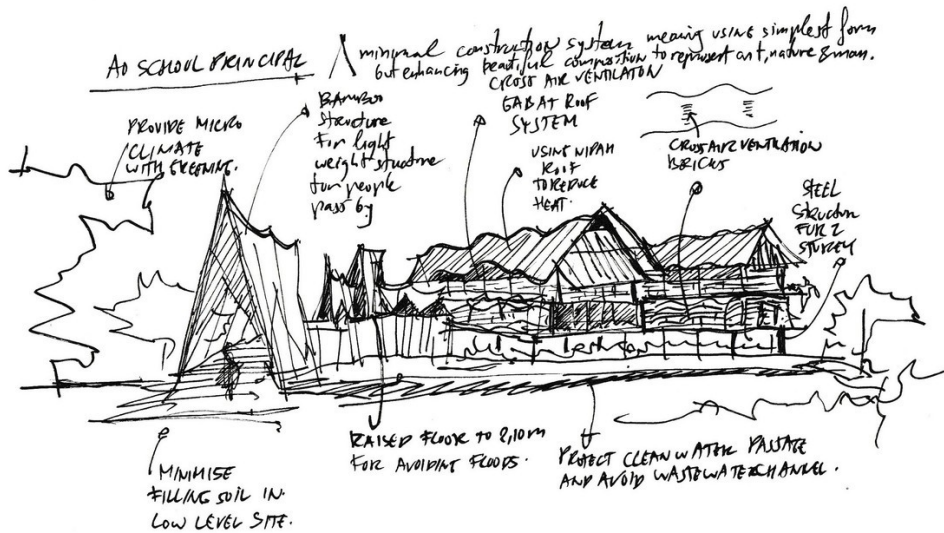 AO SCHOOL PRINCIPAL
minimal construction system meaning using simplest form
but enhancing beautiful composition to represent art, nature & man.
PROVIDE MICRO
CLIMATE
WITH GREENING.
BAMBOO
structure
for light
weight structure
for people
pass by
CROSS AIR VENTILATON
GABAT ROOF
SYSTEM
USING NIPAH
ROOF
TO REDUCE
HEAT.
CROSS AIR VENTILATION
BRICKS
STEEL
STRUCTURE
FOR 2
STOREY
MINIMISE
FILLING SOIL IN
LOW LEVEL SITE.
RAISED FLOOR TO 2,10 m
FOR AVOIDING FLOODS.
PROTECT CLEAN WATER PASSAGE
AND AVOID WASTEWATER CHANNEL.